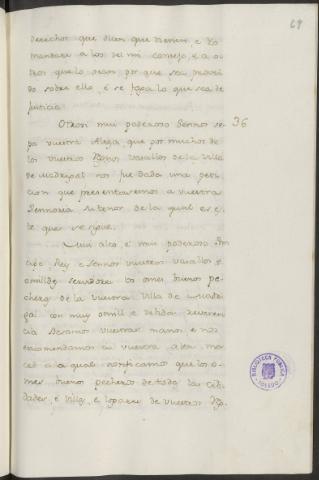 69
derechos que dicen que tienen, e Yo
mandare a los del mi consejo, e a o
tros que lo vean por que sea provei
do sobre ello, e se faga lo que sea de
justicia.
36
Otrosi mui poderoso Señor se
pa vuestra Alteza que por muchos de
los vuestros vasallos de la Villa
de Madrigal nos fue dada una peti
cion que presentaremos a vuestra
Señoria su tenor de la qual es es
te que se sigue.
Mui alto, e mui poderoso Prin
cipe Rey, e Señor vuestros vasallos e
omildes servidores los omes buenos pe
cheros de la vuestra Villa de Madri
gal con muy omill e debida reveren
cia besamos vuestras manos e nos
encomendamos en vuestra alta mer
ced a la qual notificamos que los o
mes buenos pecheros de todas las Cib
dades, e Villas, e logares de vuestros
BIBLIOTECA PUBLICA
TOLEDO